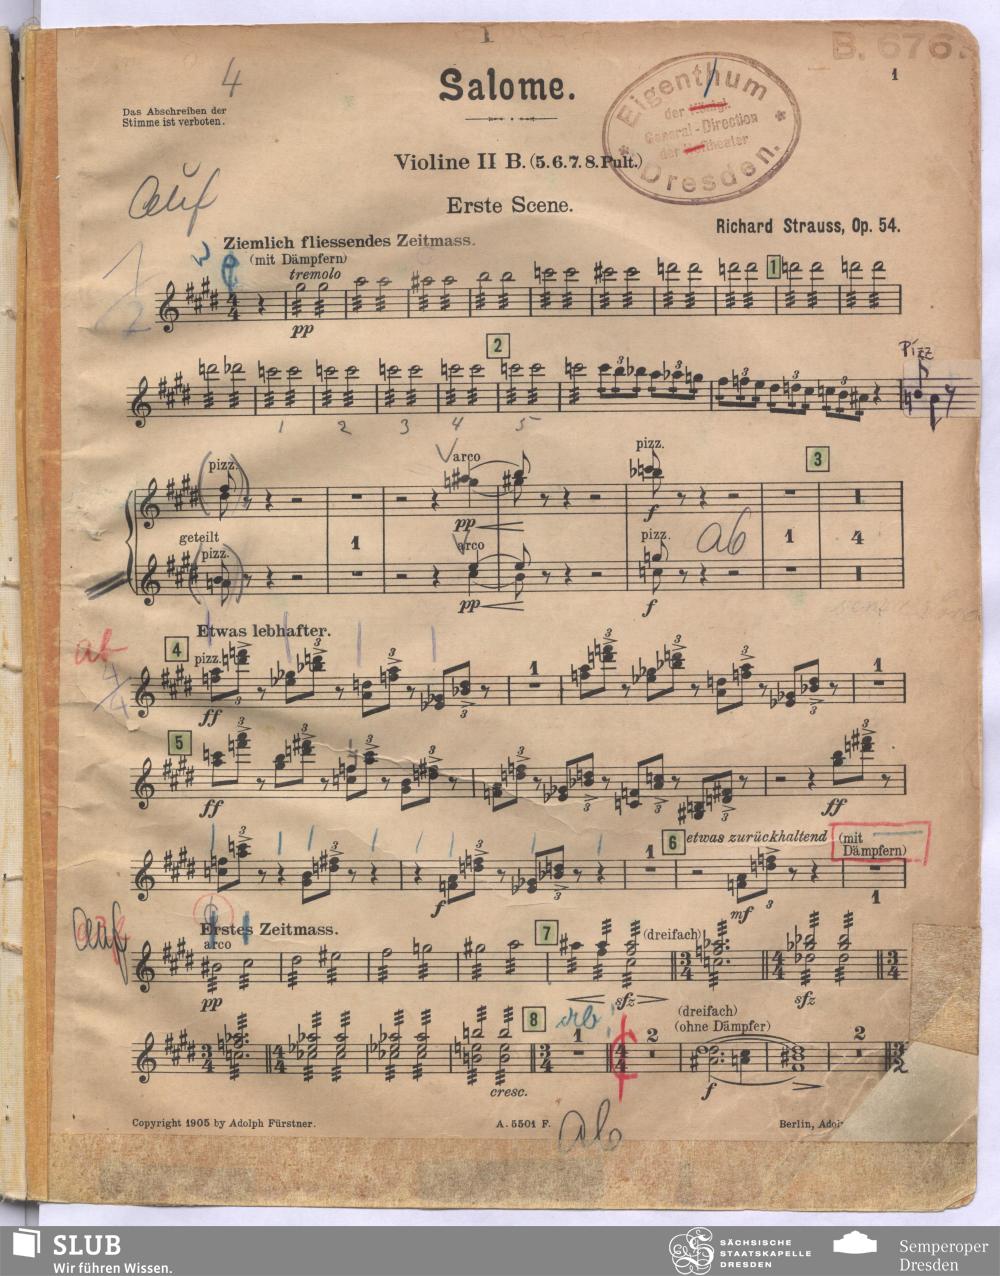 I
B. 676.
4
Salome.
1
Das Abschreiben der
Stimme ist verboten.
Eigenthum
der Königl.
General-Direction
der Hoftheater
Dresden.
Violine II B. (5. 6. 7. 8. Pult.)
auf
Erste Scene.
Richard Strauss, Op. 54.
Ziemlich fliessendes Zeitmass.
(mit Dämpfern)
tremolo
1
pp
2
Pizz
3 3 3 3 3
1 2 3 4 5
pizz.
arco
pizz.
3
pp
f
geteilt
1
ab
1
4
pizz.
arco
pizz.
pp
f
ab
Etwas lebhafter.
4
pizz.
1
1
4/4
ff
5
ff
ff
6
etwas zurückhaltend
(mit
Dämpfern)
1
f
mf
1
auf
Erstes Zeitmass.
arco
7
(dreifach)
pp
sfz
sfz
8
ab!
1
2
(dreifach)
(ohne Dämpfer)
2
cresc.
f
Copyright 1905 by Adolph Fürstner.
A. 5501 F.
ab
Berlin, Adol
SLUB
Wir führen Wissen.
SÄCHSISCHE
STAATSKAPELLE
DRESDEN
Semperoper
Dresden